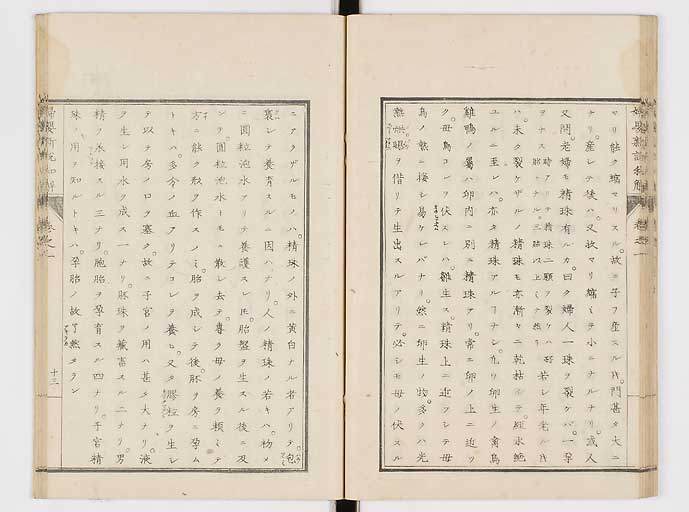 マリ能ク縮マリスル。故ニ子フ産スル𪜈。門甚タ大ニ
ナリ。産レテ後ハ。又收マリ縮ミテ小ニナルナリ。或人
又問。老婦モ精珠有ルカ。曰ク婦人一珠ヲ裂ケバ。一孕
ヲナス
時アリテ精珠二顆ヲ裂ケハ
胎トナル。三胎以上ミナ然リ
若シ年老ル𪜈
ハ。未タ裂ケザルノ精珠モ亦漸々ニ乾枯シテ。經水絶
ユルニ至レハ。亦タ精珠アルヿナシ。凡リ卵生ノ禽鳥
雞鴨ノ屬ハ卵内ニ別ニ精珠アリ。常ニ卵ノ上ニ迫リ
ク。母鳥コレヲ伏スレハ。雛生ス。精珠上ニ迫フレテ母
鳥ノ熱ニ接シ易ケレバナリ。然ニ卵生ノ物。多クハ光
熱烘眼ヲ借リテ生出スルアリテ。必シモ母ノ伏スル
ニアタザルモノハ。精珠ノ外ニ黄白ナル者アリテ。包
裹シテ養育スルニ因ハナリ。人ノ精珠ノ若キハ。初メ
ニ圓粒泡水アリテ養護スレ𪜈。胎盤ヲ生スル後ニ及
ンテ。圓粒泡水トモニ散レ去テ。專ク母ノ養ヲ頼ミテ
方ニ能ク㱿ヲ作スノミ。胎ヲ成レテ後。胚ヲ房ニ孕ム
トキハ。多分ノ血アリテコレヲ養ヒ。又タ膠粒ヲ生レ
テ以テ房ノ口ヲ塞ク。故ニ子宮ノ用ハ甚タ大ナリ。液
ヲ生シ用水ヲ成ス一ナリ。胚珠ヲ藏畜スル二ナリ。男
精ヲ承接スル三ナリ。胞胎ヲ孕育スル四ナリ。子宮精
珠ノ用ヲ知ルトキハ。孕胎ノ故了然タラン
十三